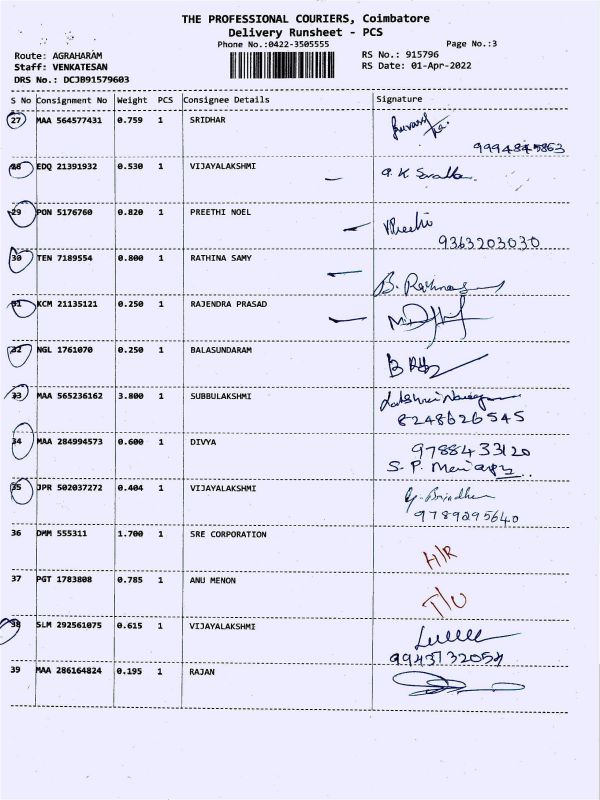 THE PROFESSIONAL COURIERS, Coimbatore
Delivery Runsheet - PCS
Phone No.:0422-3505555
Page No.:3
Route: AGRAHARAM
RS No.: 915796
Staff: VENKATESAN
RS Date: 01-Apr-2022
DRS No.: DCJB91579603
S No Consignment No Weight PCS Consignee Details Signature
27 MAA 564577431 0.759 1 SRIDHAR
9994845863
28 EDQ 21391932 0.530 1 VIJAYALAKSHMI
29 PON 5176760 0.820 1 PREETHI NOEL
Preethi
9363203030
30 TEN 7189554 0.800 1 RATHINA SAMY
31 KCM 21135121 0.250 1 RAJENDRA PRASAD
32 NGL 1761070 0.250 1 BALASUNDARAM
33 MAA 565236162 3.800 1 SUBBULAKSHMI
8248626545
34 MAA 284994573 0.600 1 DIVYA
9788433120
35 JPR 502037272 0.404 1 VIJAYALAKSHMI
9789295640
36 DMM 555311 1.700 1 SRE CORPORATION
H/R
37 PGT 1783808 0.785 1 ANU MENON
T/U
38 SLM 292561075 0.615 1 VIJAYALAKSHMI
9943732054
39 MAA 286164824 0.195 1 RAJAN